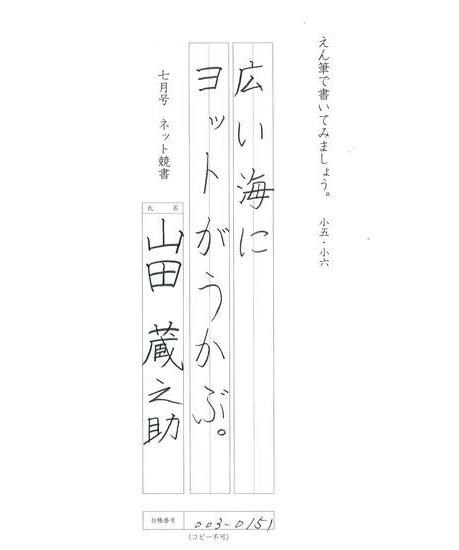 えん筆で書いてみましょう。 小五・小六
広い海に
ヨットがうかぶ。
七月号 ネット競書
氏名
山田 蔵之助
台帳番号 003-0151
(コピー不可)